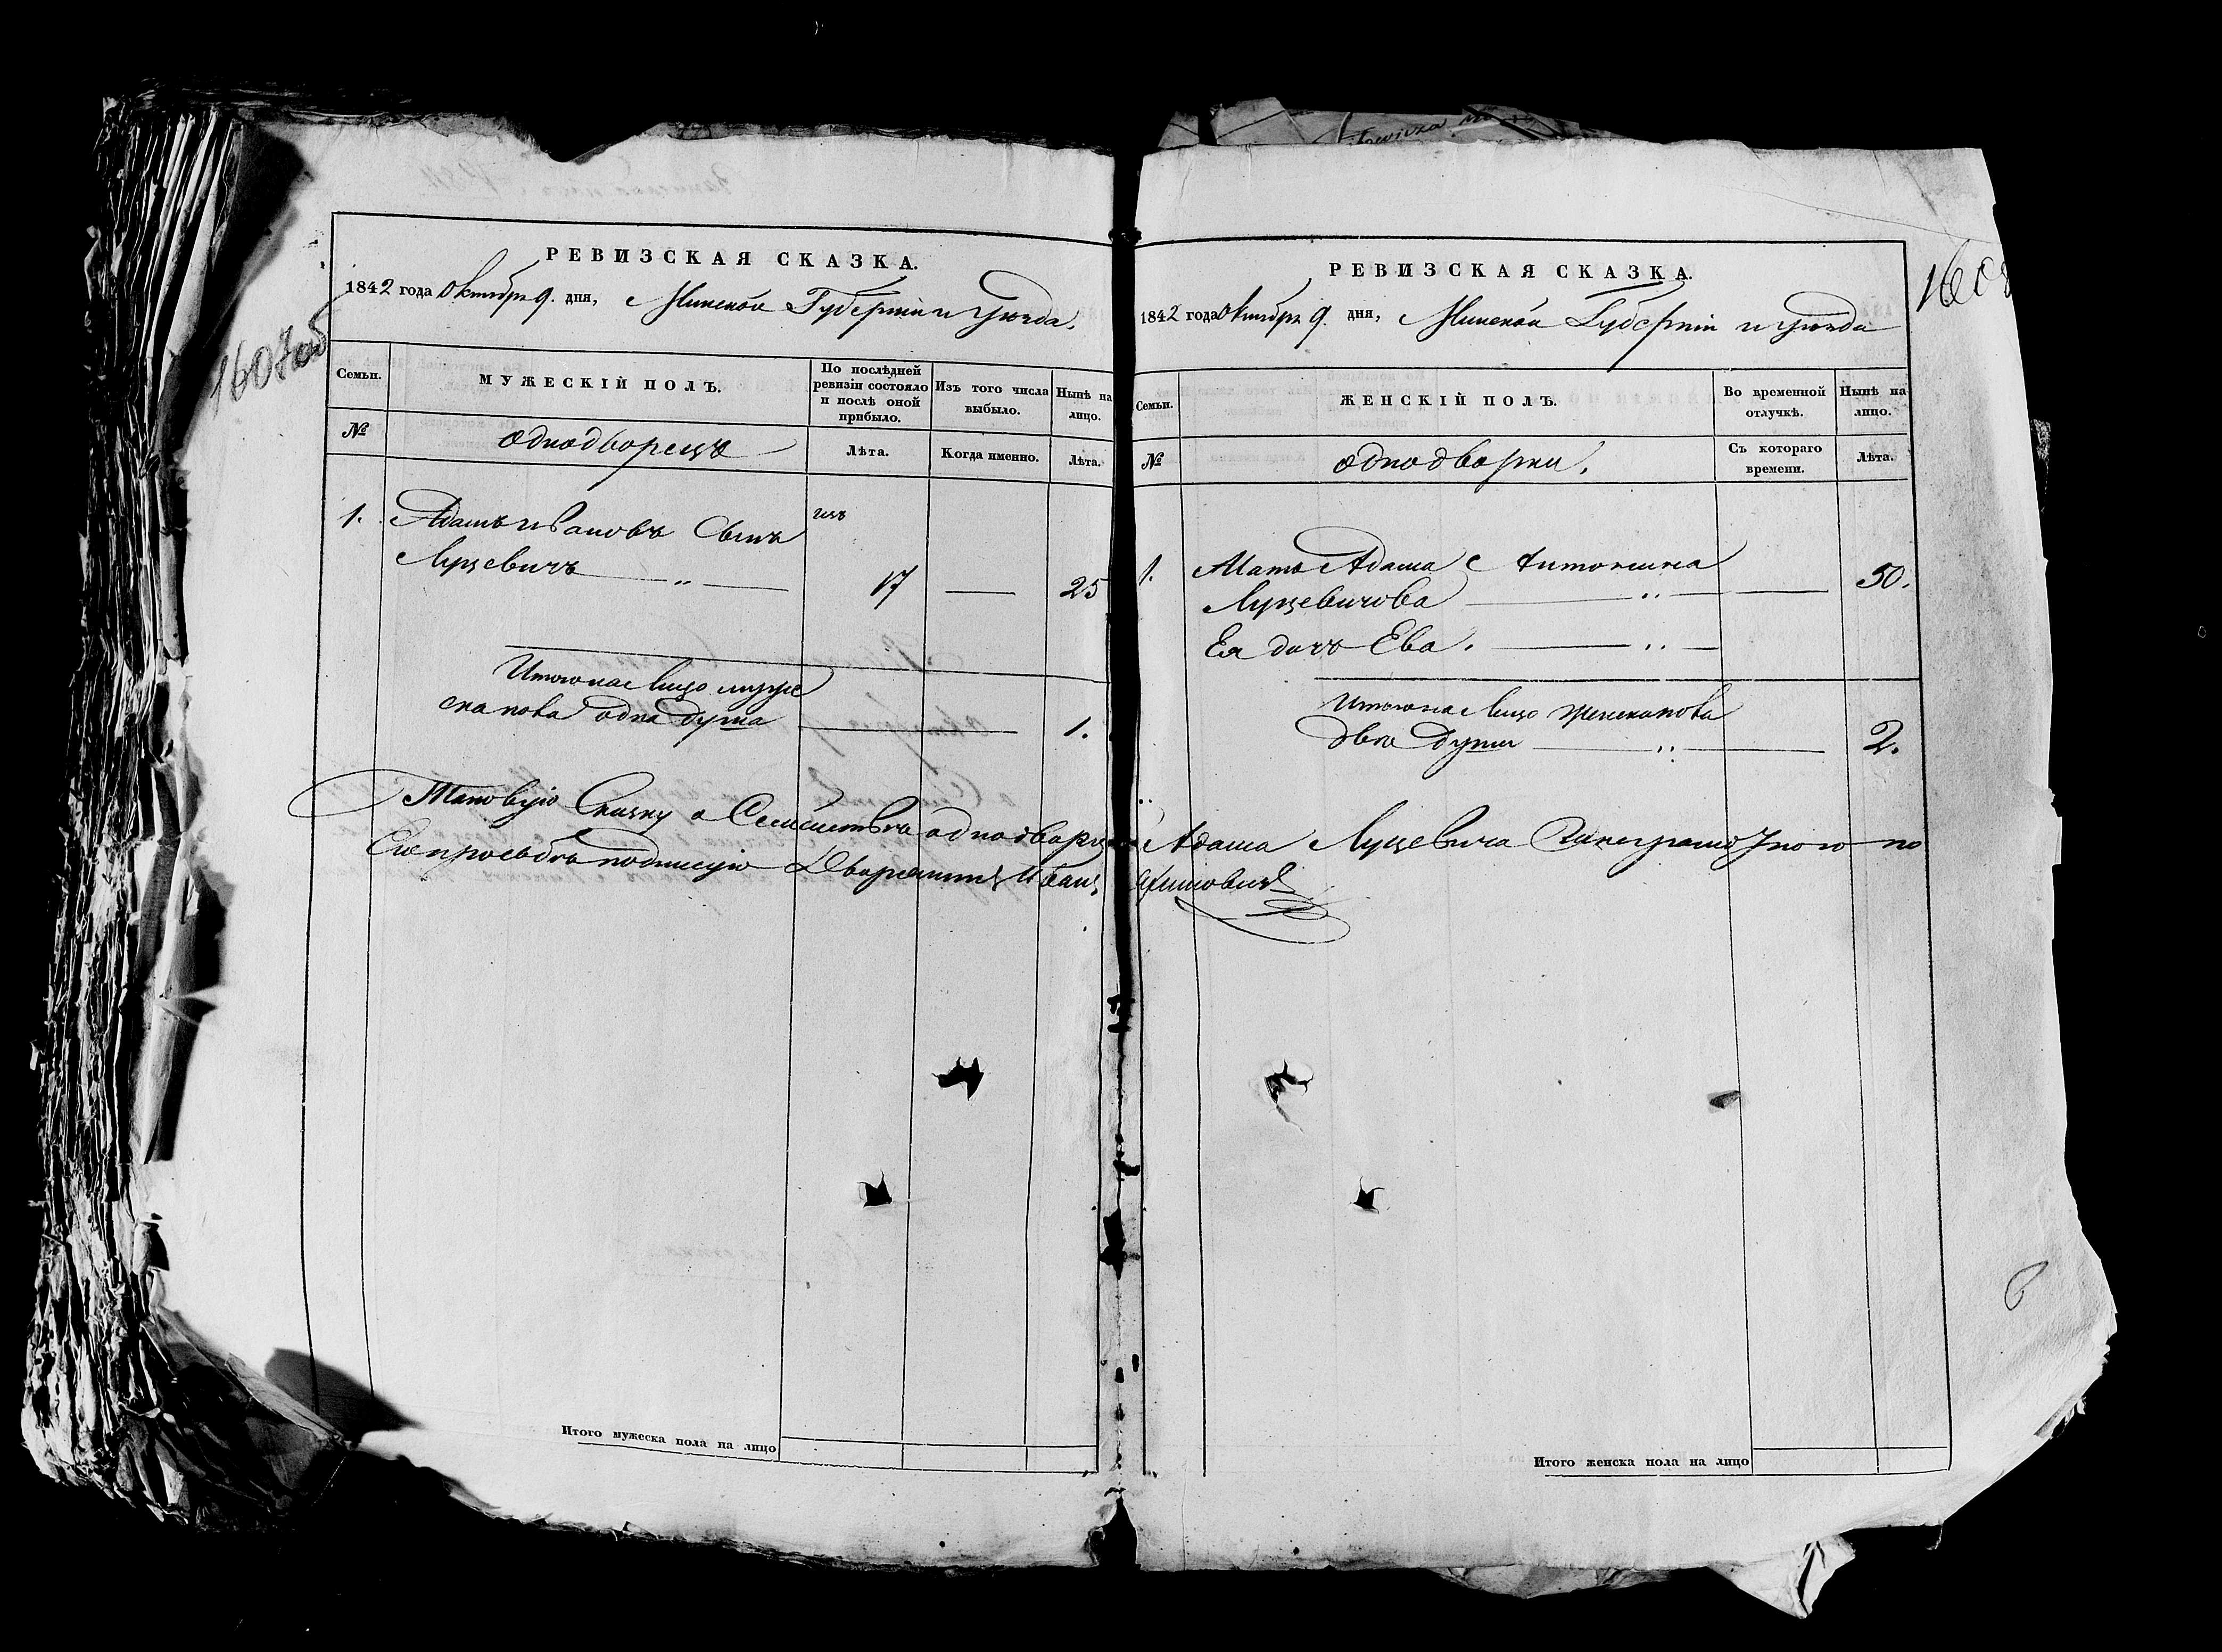 1607 об
РЕВИЗСКАЯ СКАЗКА.
1842 года Октября 9. дня, Минской Губерніи и Уѣзда.
Семьи.
МУЖЕСКІЙ ПОЛЪ.
По послѣдней
ревизіи состояло
и послѣ оной
прибыло.
Изъ того числа
выбыло.
Нынѣ на
лицо.
№
однодворецъ
Лѣта.
Когда именно.
Лѣта.
1. Адамъ Ивановъ Сынъ
Луцевичъ 17 — 25
Итого на Лицо муже
ска пола одна душа 1.
Таковую Сказку о Семействѣ однодворца Адама Луцевича За неграмотного по
Его прозьбѣ подписую Дворянинъ Иванъ
Итого мужеска пола на лицо
1608
РЕВИЗСКАЯ СКАЗКА.
1842 года Октября 9. дня, Минской Губерніи и Уѣзда
Семьи.
ЖЕНСКІЙ ПОЛЪ.
Во временной
отлучкѣ.
Нынѣ на
лицо.
№
однодворки.
Съ котораго
времени.
Лѣта.
1. Мать Адама Антонина
Луцевичова — 50.
Ея дочь Ева.
Итого на Лицо женска пола
двѣ души 2.
Итого женска пола на лицо